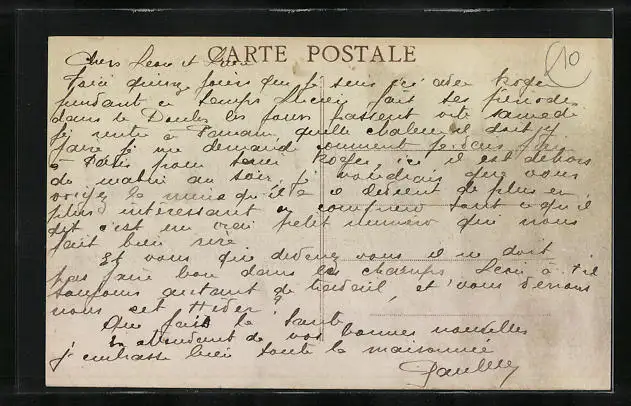 CARTE POSTALE
10
Chers Leon et
Voici quinze jours que je suis ici avec Roger
pendant ce temps Lucien fait ses periodes
dans le Doubs les jours passent vite samedi
je rentre a quelle chaleur il doit y
faire je me demande comment je vais faire
a Paris pour tenir Roger, ici il est dehors
du matin au soir, je voudrais que vous
voyiez la mine qu'il a il devient de plus en
plus interessant a comprend tout ce qu'il
dit c'est un vrai petit numero qui nous
fait bien rire
Et vous que devenez vous il ne doit
pas faire bon dans les champs Leon a-t-il
toujours autant de travail, et vous verrons
nous cet Hiver?
Que fait la sante
En attendant de vos bonnes nouvelles
j'embrasse bien toute la maisonnee